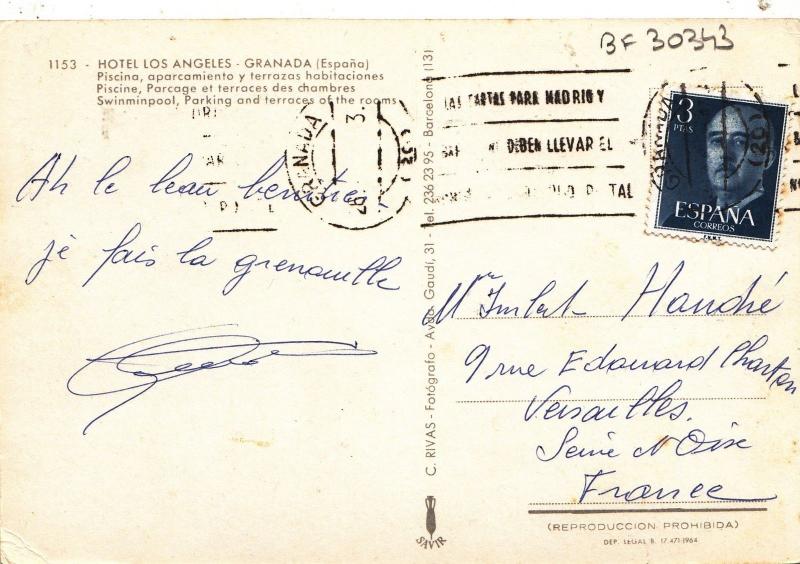 BF 30343
1153 - HOTEL LOS ANGELES - GRANADA (España)
Piscina, aparcamiento y terrazas habitaciones
Piscine, Parcage et terraces des chambres
Swinminpool, Parking and terraces of the rooms
GRANADA
LAS CARTAS PARA MADRID Y
DEBEN LLEVAR EL
3
PTAS
ESPAÑA
CORREOS
F.N.M.T.
GRANADA
Ah le beau
je fais la grenouille
C. RIVAS - Fotógrafo - Avda. Gaudí, 31 - Tel. 236 23 95 - Barcelona (13)
SAVIR
Handré
9 rue Edouard Charton
Versailles.
Seine N Oise
France
(REPRODUCCION PROHIBIDA)
DEP. LEGAL B. 17.471-1964